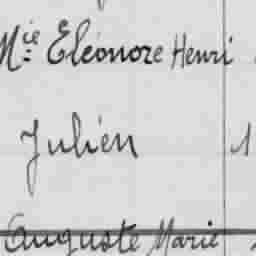 Mie Eléonore Henri
Julien 1
Auguste Marie